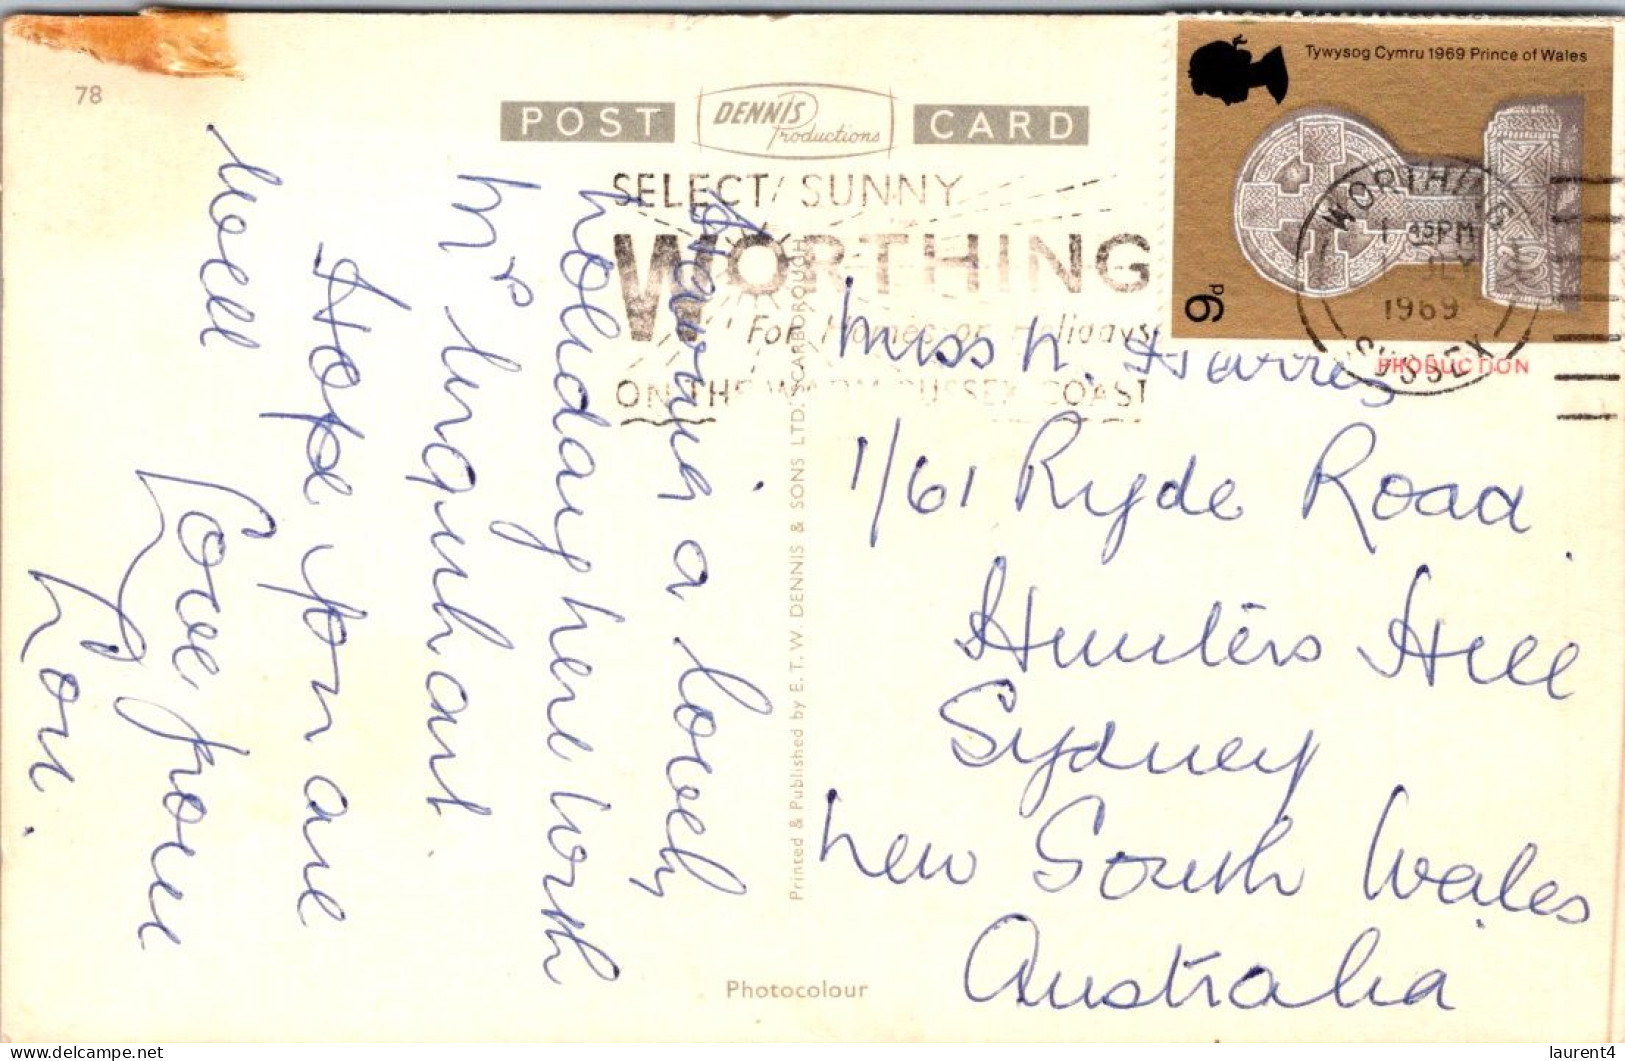 78
POST DENNIS Productions CARD
Tywysog Cymru 1969 Prince of Wales
9d
SELECT SUNNY
WORTHING
For Homes or Holidays
ON THE WARM SUSSEX COAST
WORTHING
1 45PM
1 JLY
1969
SUSSEX
PRODUCTION
Having a lovely
holiday here with
Mrs Urquhart.
Hope you are
well
Love from
Lou.
Printed & Published by E. T. W. DENNIS & SONS LTD. SCARBOROUGH
Miss N. Harris
1/61 Ryde Road
Hunters Hill
Sydney
New South Wales
Australia
Photocolour
delcampe.net
laurent4